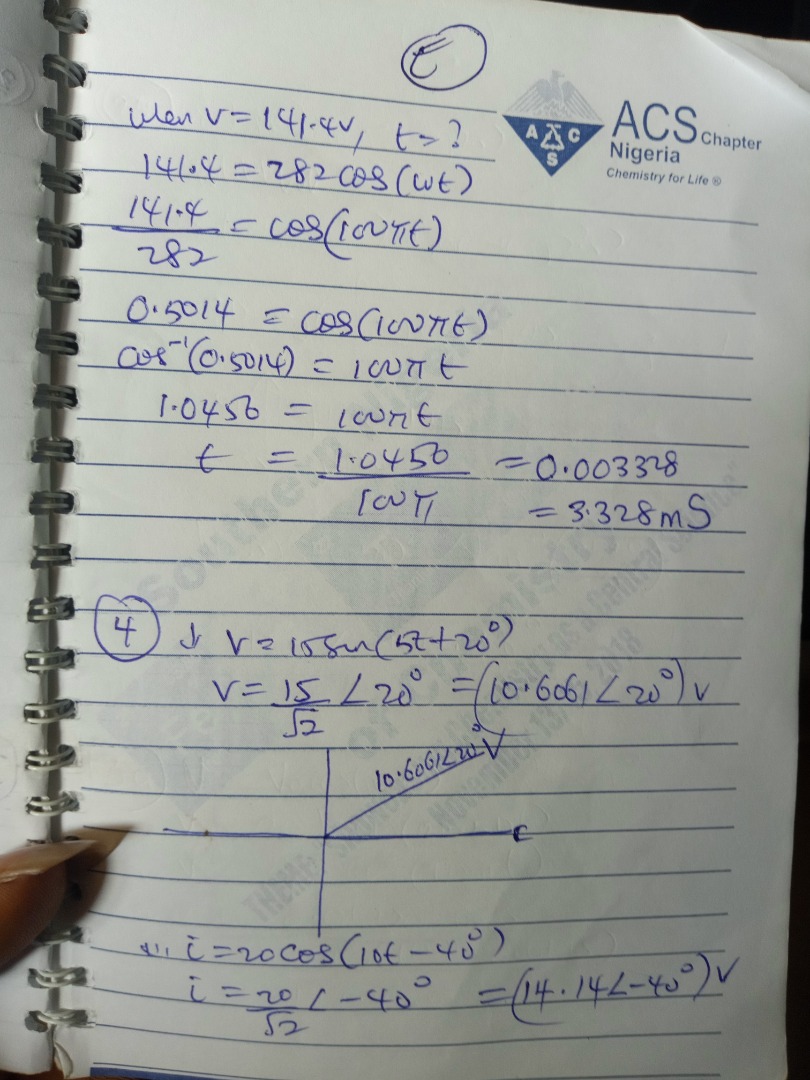 t
ACS Chapter
Nigeria
Chemistry for Life ®
A C
S
when V = 141.4V, t = ?
141.4 = 282 cos(wt)
141.4/282 = cos(100πt)
0.5014 = cos(100πt)
cos⁻¹(0.5014) = 100πt
1.0456 = 100πt
t = 1.0456/100π = 0.003328
= 3.328mS
4 V = 15 sin(5t+20°)
V = 15/√2 ∠20° = (10.6061∠20°)V
10.6061∠20°V
i = 20cos(10t - 40°)
i = 20/√2 ∠-40° = (14.14∠-40°)V